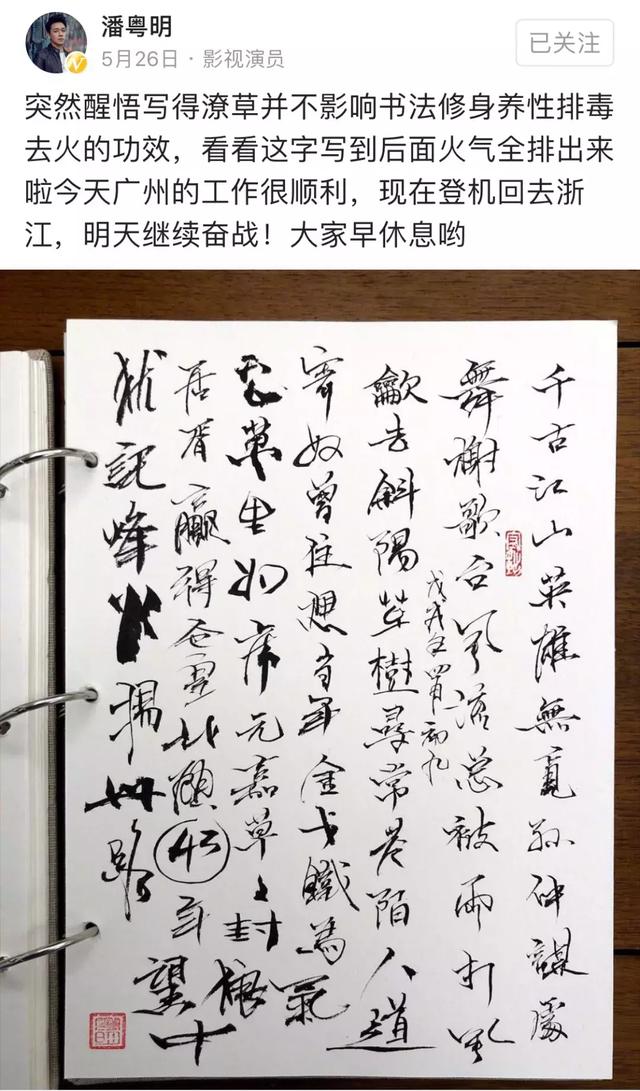 潘粤明
5月26日 · 影视演员
已关注
突然醒悟写得潦草并不影响书法修身养性排毒
去火的功效，看看这字写到后面火气全排出来
啦今天广州的工作很顺利，现在登机回去浙
江，明天继续奋战！大家早休息哟
千古江山英雄無覓孙仲謀處
舞榭歌台风流总被雨打风
龡去斜陽草樹尋常巷陌人道
戊戌年四月初九
寄奴曾住想当年金戈鐵馬氣
吞萬里如虎元嘉草々封狼
居胥贏得仓皇北顾43年望中
犹記烽火揚州路